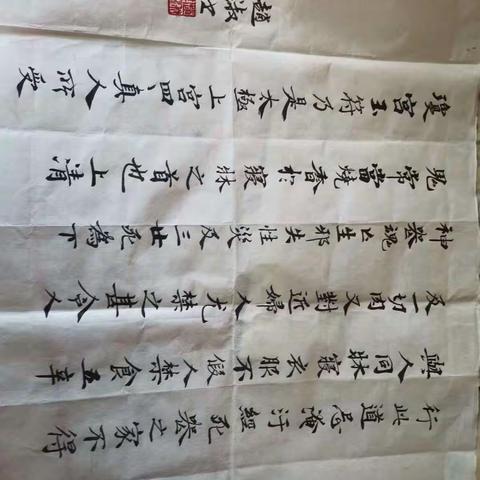 行此道忌淹汙經死喪之家不得
與人同牀寢衣服不假人禁食五辛
及一切肉又對近婦人尤禁之甚令人
神喪魂亡生邪失性災及三世死為下
鬼常當燒香於寢牀之首也上清
瓊宮玉符乃是太極上宮四真人所受
趙淑